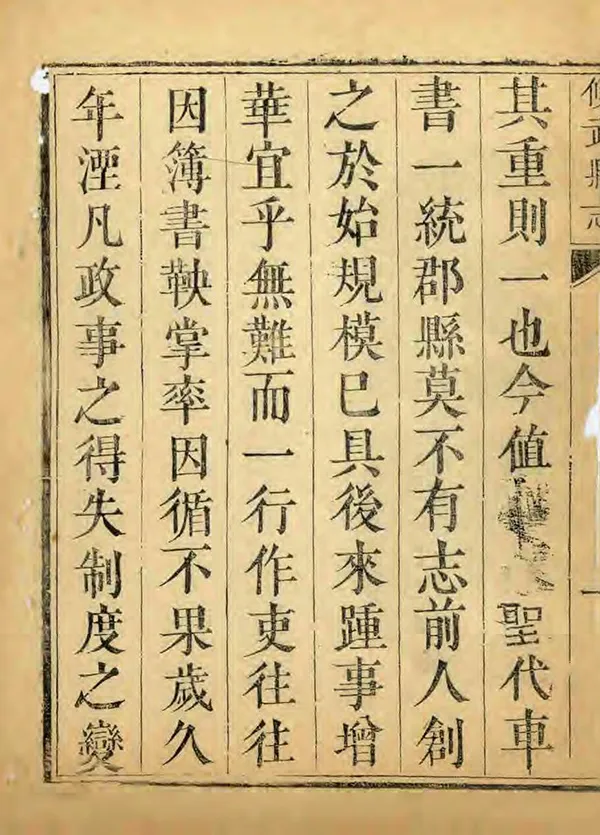 修武縣志
一
其重則一也今值聖代車
書一統郡縣莫不有志前人創
之於始規模已具後來踵事增
華宜乎無難而一行作吏往往
因簿書鞅掌率因循不果歲久
年湮凡政事之得失制度之變